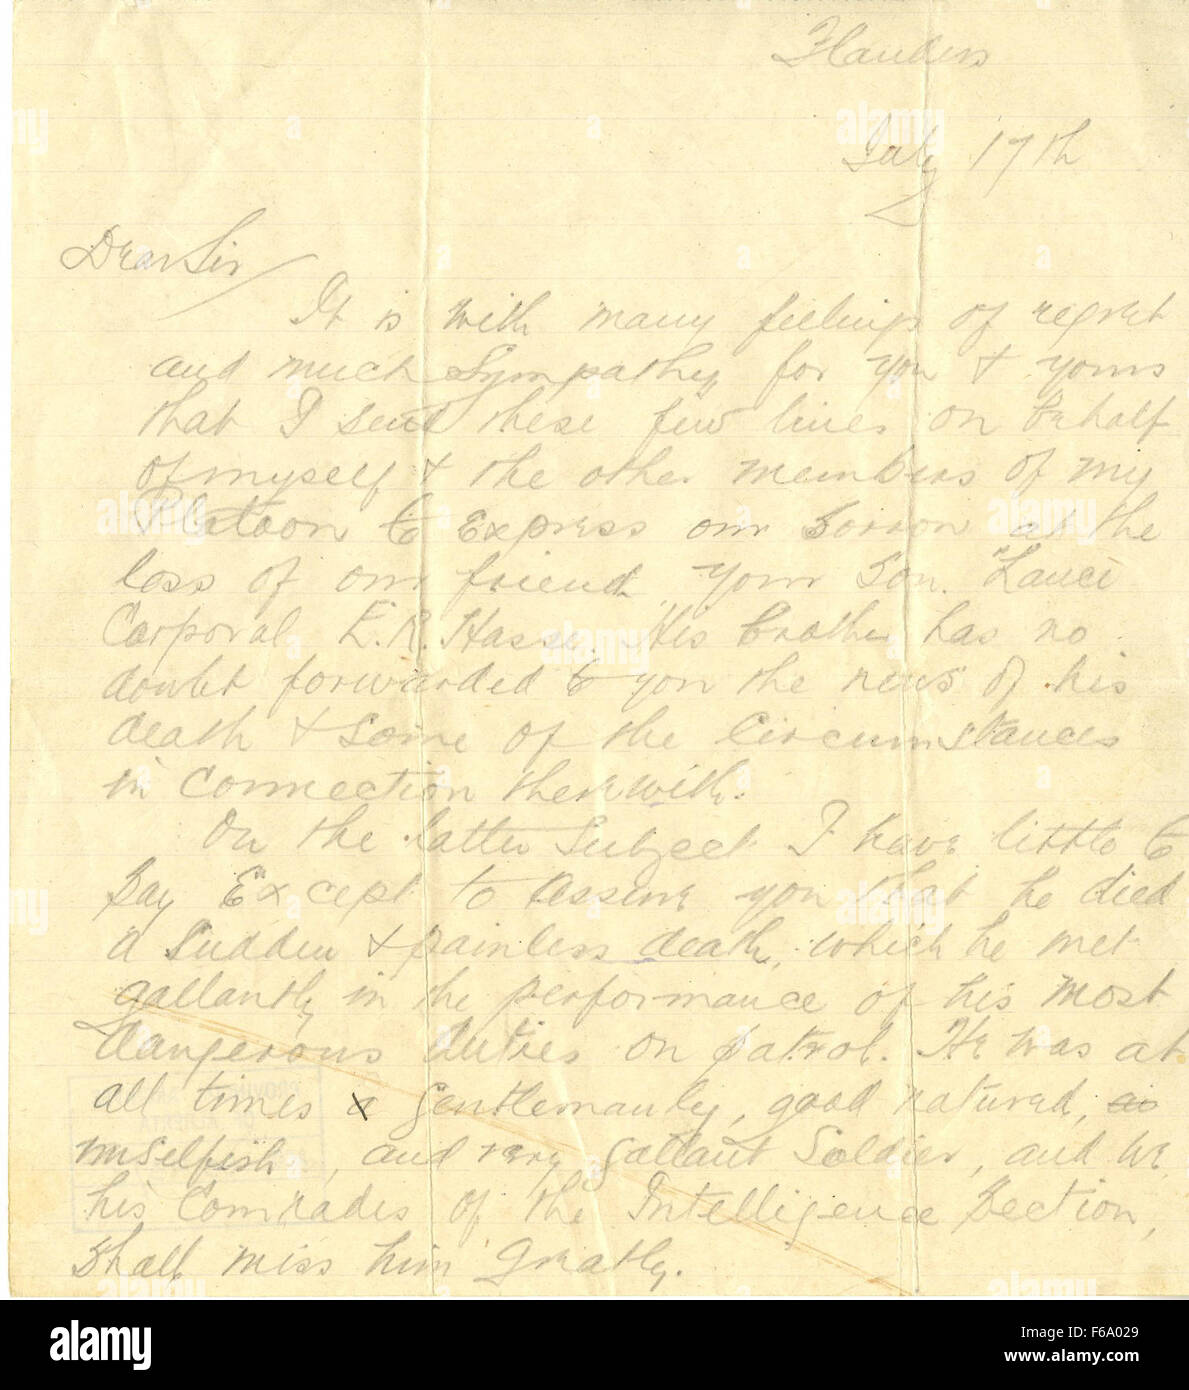 Flanders
July 17th
Dear Sir
It is with many feelings of regret
and much Sympathy for you & yours
that I send these few lines on behalf
of myself & the other members of my
Platoon to Express our Sorrow at the
loss of our friend, your Son. Lance
Corporal E.R. Hasse. His brother has no
doubt forwarded to you the news of his
death & some of the Circumstances
in connection therewith.
On the latter Subject I have little to
Say Except to assure you that he died
a sudden & painless death, which he met
gallantly in the performance of his most
dangerous duties on patrol. He was at
all times a gentlemanly, good natured, as
unselfish, and very gallant Soldier, and we
his Comrades of the Intelligence Section,
Shall miss him Greatly.
alamy
Image ID: F6A029
www.alamy.com